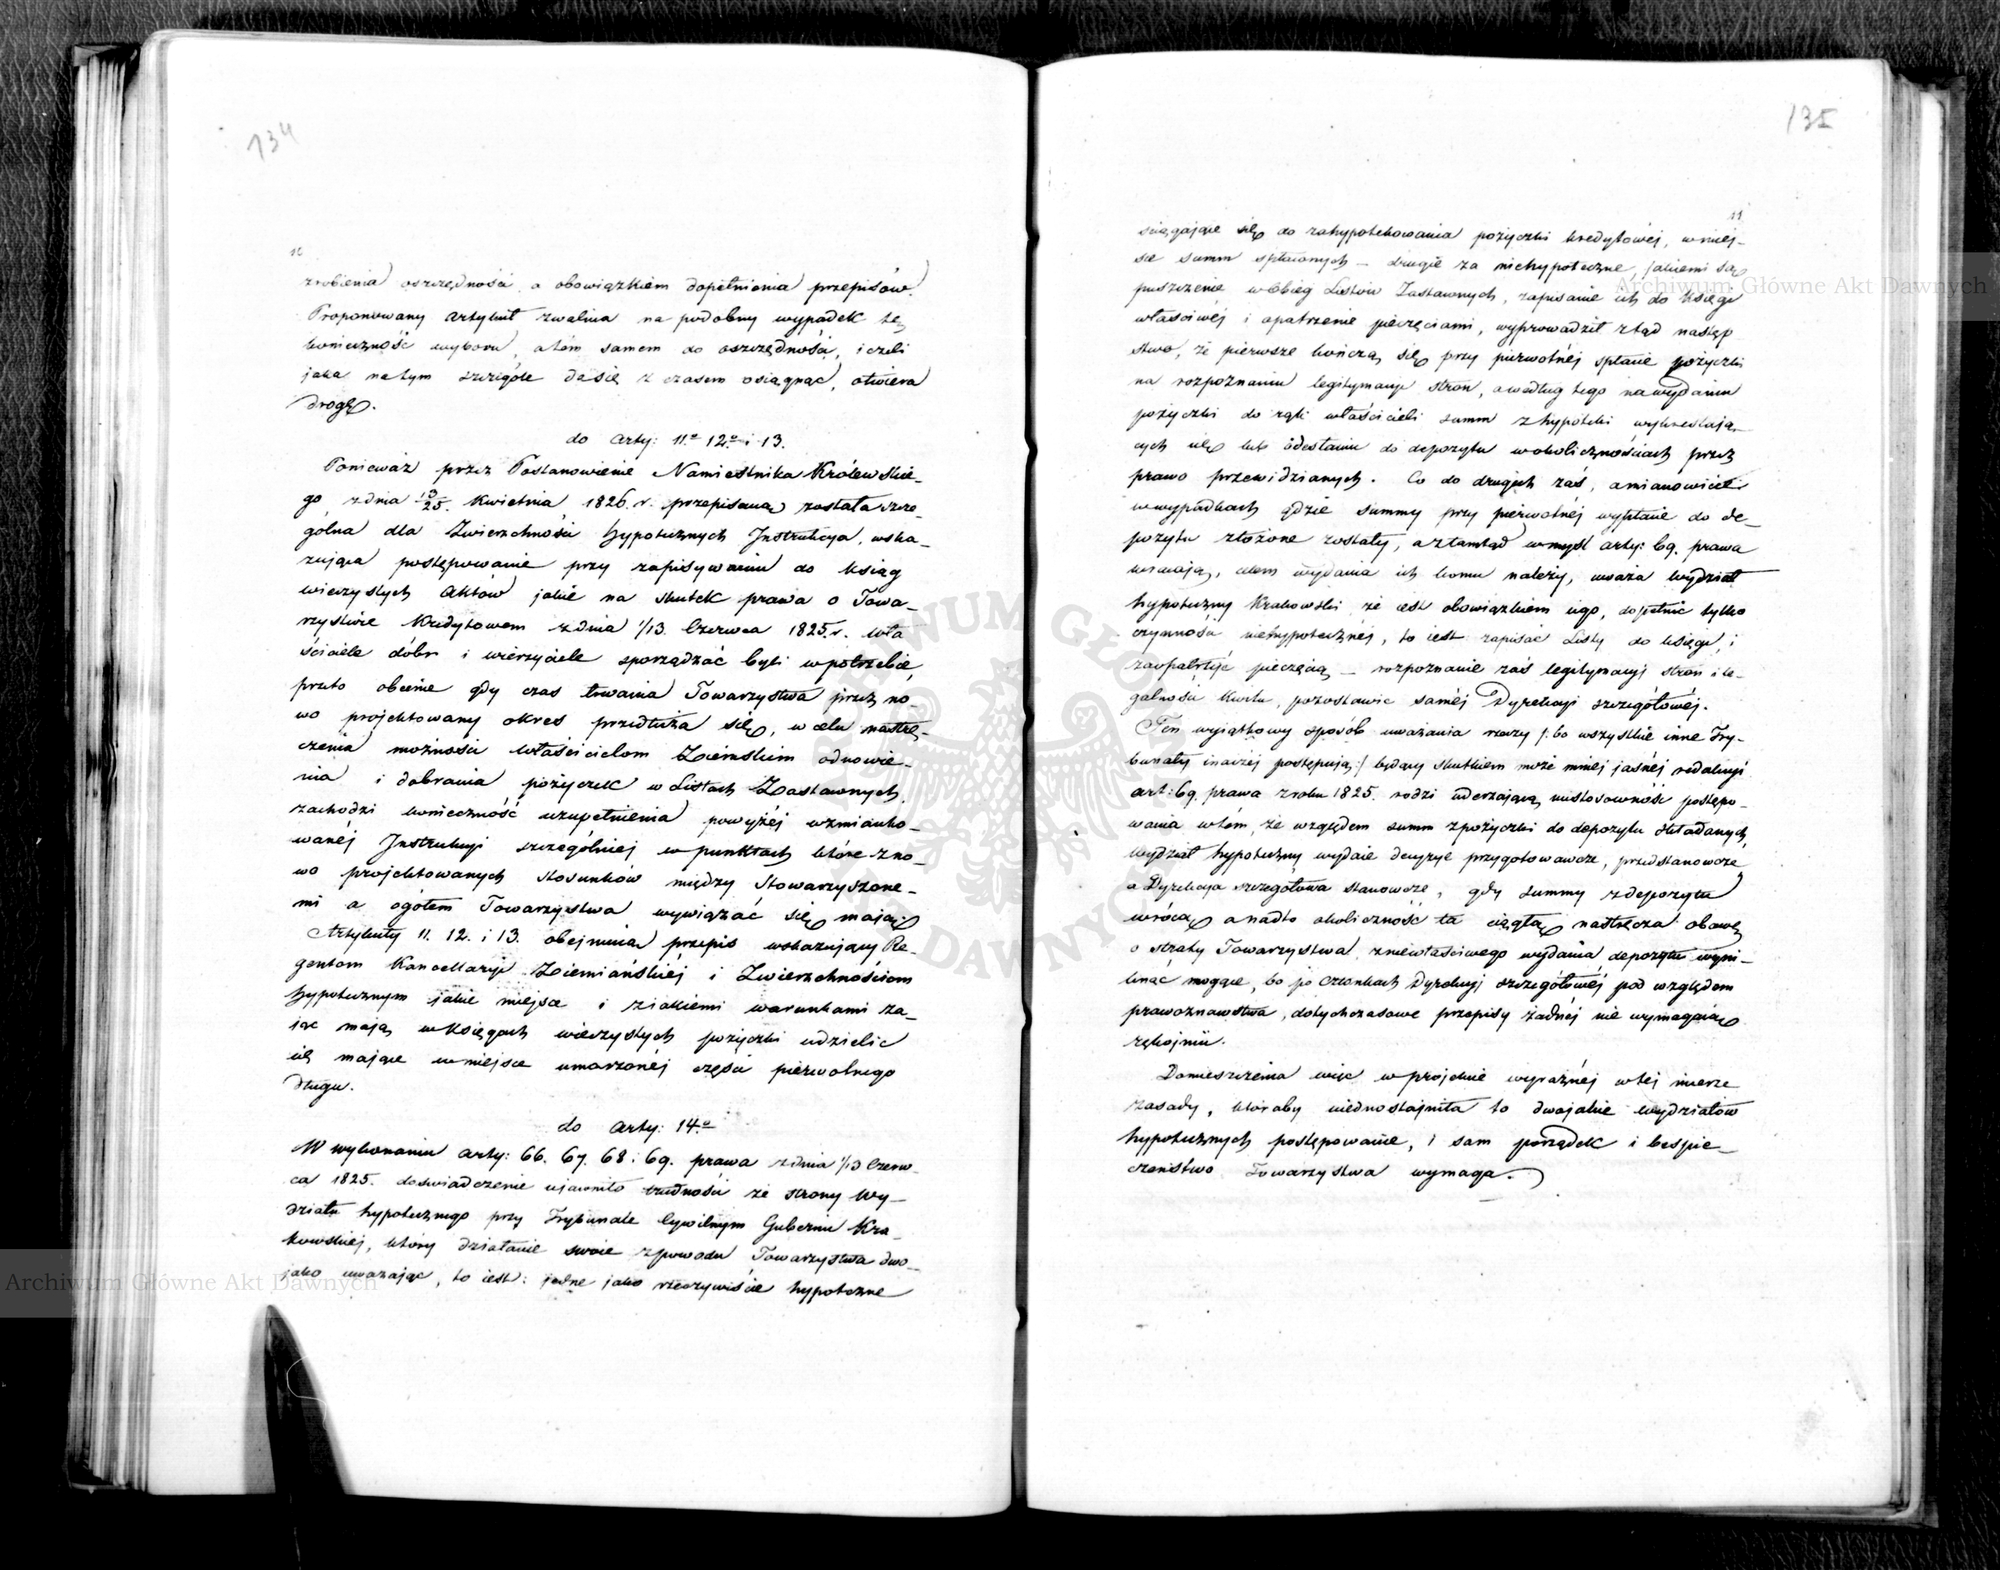 134
10
zrobienia oszczędności, a obowiązkiem dopełnienia przepisów.
Proponowany artykuł zwalnia na podobny wypadek tę
konieczność wyboru, a tém samem do oszczędności, ieżeli
jaka na tym szczególe da się z czasem osiągnąć, otwiera
drogę.
do arty: 11.o 12.o i 13.
Ponieważ przez Postanowienie Namiestnika Królewskie-
go z dnia 13/25. Kwietnia 1826. r. przepisaną została szcze-
gólna dla Zwierzchności hypotecznych Instrukcya, wska-
zująca postępowanie przy zapisywaniu do ksiąg
wieczystych Aktów jakie na skutek prawa o Towa-
rzystwie Kredytowem z dnia 1/13. Czerwca 1825. r. wła
ściciele dóbr i wierzyciele sporządzać byli w potrzebie,
przeto obecnie gdy czas trwania Towarzystwa przez no-
wo projektowany okres przedłuża się, w celu nastrę-
czenia możności właścicielom Ziemskim odnowie-
nia i dobrania pożyczek w Listach Zastawnych,
zachodzi konieczność uzupełnienia powyżéj wzmianko-
wanéj Instrukcyi szczególniéj w punktach które z no-
wo projektowanych stosunków między Stowarzyszone-
mi a ogółem Towarzystwa wywiązać się mają.
Artykuły 11. 12. i 13. obejmują przepis wskazujący Re-
gentom Kancellaryi Ziemiańskiéj i Zwierzchnościom
hypotecznym jakie miejsce i z iakiemi warunkami za-
iąć mają w księgach wieczystych pożyczki udzielić
się mające w miejsce umorzonéj części pierwotnego
długu.
do arty: 14.o
W wykonaniu arty: 66. 67. 68 i 69. prawa z dnia 1/13 Czerw-
ca 1825. doświadczenie ujawniło trudności ze strony Wy-
działu hypotecznego przy Trybunale Cywilnym Gubernii Kra-
kowskiej, który działanie swoie z powodu Towarzystwa dwo-
jako uważając, to iest: jedne jako rzeczywiście hypoteczne
135
11
ściągające się do zahypotekowania pożyczki kredytowéj, w miej-
sce summ spłaconych – drugie za niehypoteczne, jakiemi są
puszczenie w obieg Listów Zastawnych, zapisanie ich do księgi
właściwéj i opatrzenie pieczęciami, wyprowadził ztąd następ
stwo, że pierwsze kończą się przy pierwotnéj spłacie pożyczki
na rozpoznaniu legitymacyi stron, a według tego na wydaniu
pożyczki do rąk właścicieli summ z hypoteki wykreślają-
cych się lub odesłaniu do depozytu w okolicznościach przez
prawo przewidzianych. Co do drugich zaś, a mianowicie
w wypadkach gdzie summy przy pierwotnéj wypłacie do de-
pozytu złożone zostały, a ztamtąd w myśl arty: 69. prawa
wracają, celem wydania ich komu należy, uważa wydział
hypoteczny Krakowski, że iest obowiązkiem iego, dopełnić tylko
czynności niehypotecznéj, to iest zapisać Listy do księgi, i
zaopatrzyć pieczęcią – rozpoznanie zaś legitymacyi stron i le-
galności kwitu, pozostawić saméj Dyrekcyi szczegółowéj.
Ten wyiątkowy sposób uważania rzeczy /: bo wszystkie inne Try-
bunały inaczéj postępują :/ będący skutkiem może mniéj jasnéj redakcyi
art: 69. prawa z roku 1825. rodzi uderzającą niestosowność postępo-
wania w tém, że względem summ z pożyczki do depozytu składanych,
Wydział hypoteczny wydaie decyzye przygotowawcze, przedstanowcze
a Dyrekcya szczegółowa stanowcze, gdy summy z depozytu
wrócą, a nadto okoliczność ta ciągłą nastręcza obawę
o straty Towarzystwa z niewłaściwego wydania depozytu wyni-
knąć mogące, bo po członkach Dyrekcyi szczegółowéj pod względem
prawoznawstwa, dotychczasowe przepisy żadnéj nie wymagają
rękojmii.
Domieszczenia więc w projekcie wyraźnéj w téj mierze
zasady, któraby ujednostajniła to dwojakie wydziałów
hypotecznych postępowanie, i sam porządek i bespie-
czeństwo Towarzystwa wymaga.
Archiwum Główne Akt Dawnych
Archiwum Główne Akt Dawnych
ARCHIWUM GŁÓWNE AKT DAWNYCH